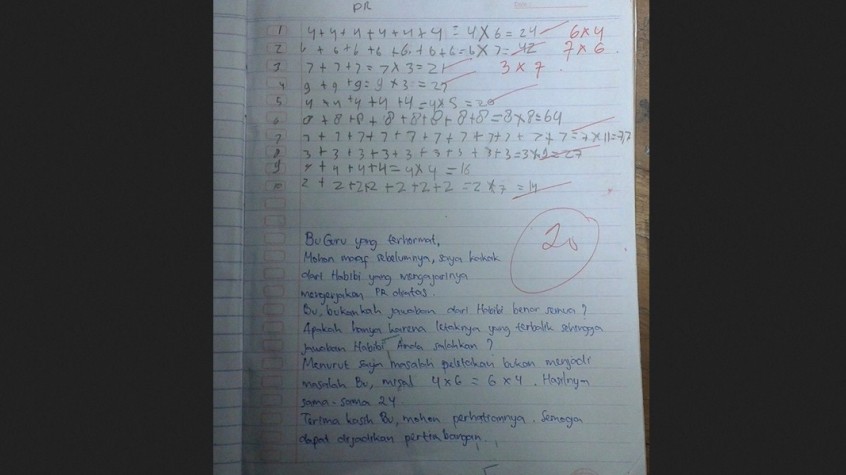 PR
1 4+4+4+4+4+4 = 4×6 = 24 6×4
2 6+6+6+6+6+6+6=6×7=42 7×6
3 7+7+7=7×3=21 3×7
4 9+9+9=9×3=27
5 4+4+4+4+4=4×5=20
6 8+8+8+8+8+8+8+8=8×8=64
7 7+7+7+7+7+7+7+7+7+7+7=7×11=77
8 3+3+3+3+3+3+3+3+3=3×9=27
9 4+4+4+4=4×4=16
10 2+2+2+2+2+2+2=2×7=14
20
Bu Guru yang terhormat,
Mohon maaf sebelumnya, saya kakak
dari Habibi yang mengajarinya
mengerjakan PR diatas.
Bu, bukankah jawaban dari Habibi benar semua?
Apakah hanya karena letaknya yang terbalik sehingga
jawaban Habibi Anda salahkan?
Menurut saya masalah peletakan bukan menjadi
masalah Bu, misal 4×6 = 6×4. Hasilnya
sama-sama 24.
Terima kasih Bu, mohon perhatiannya. Semoga
dapat dijadikan pertimbangan.